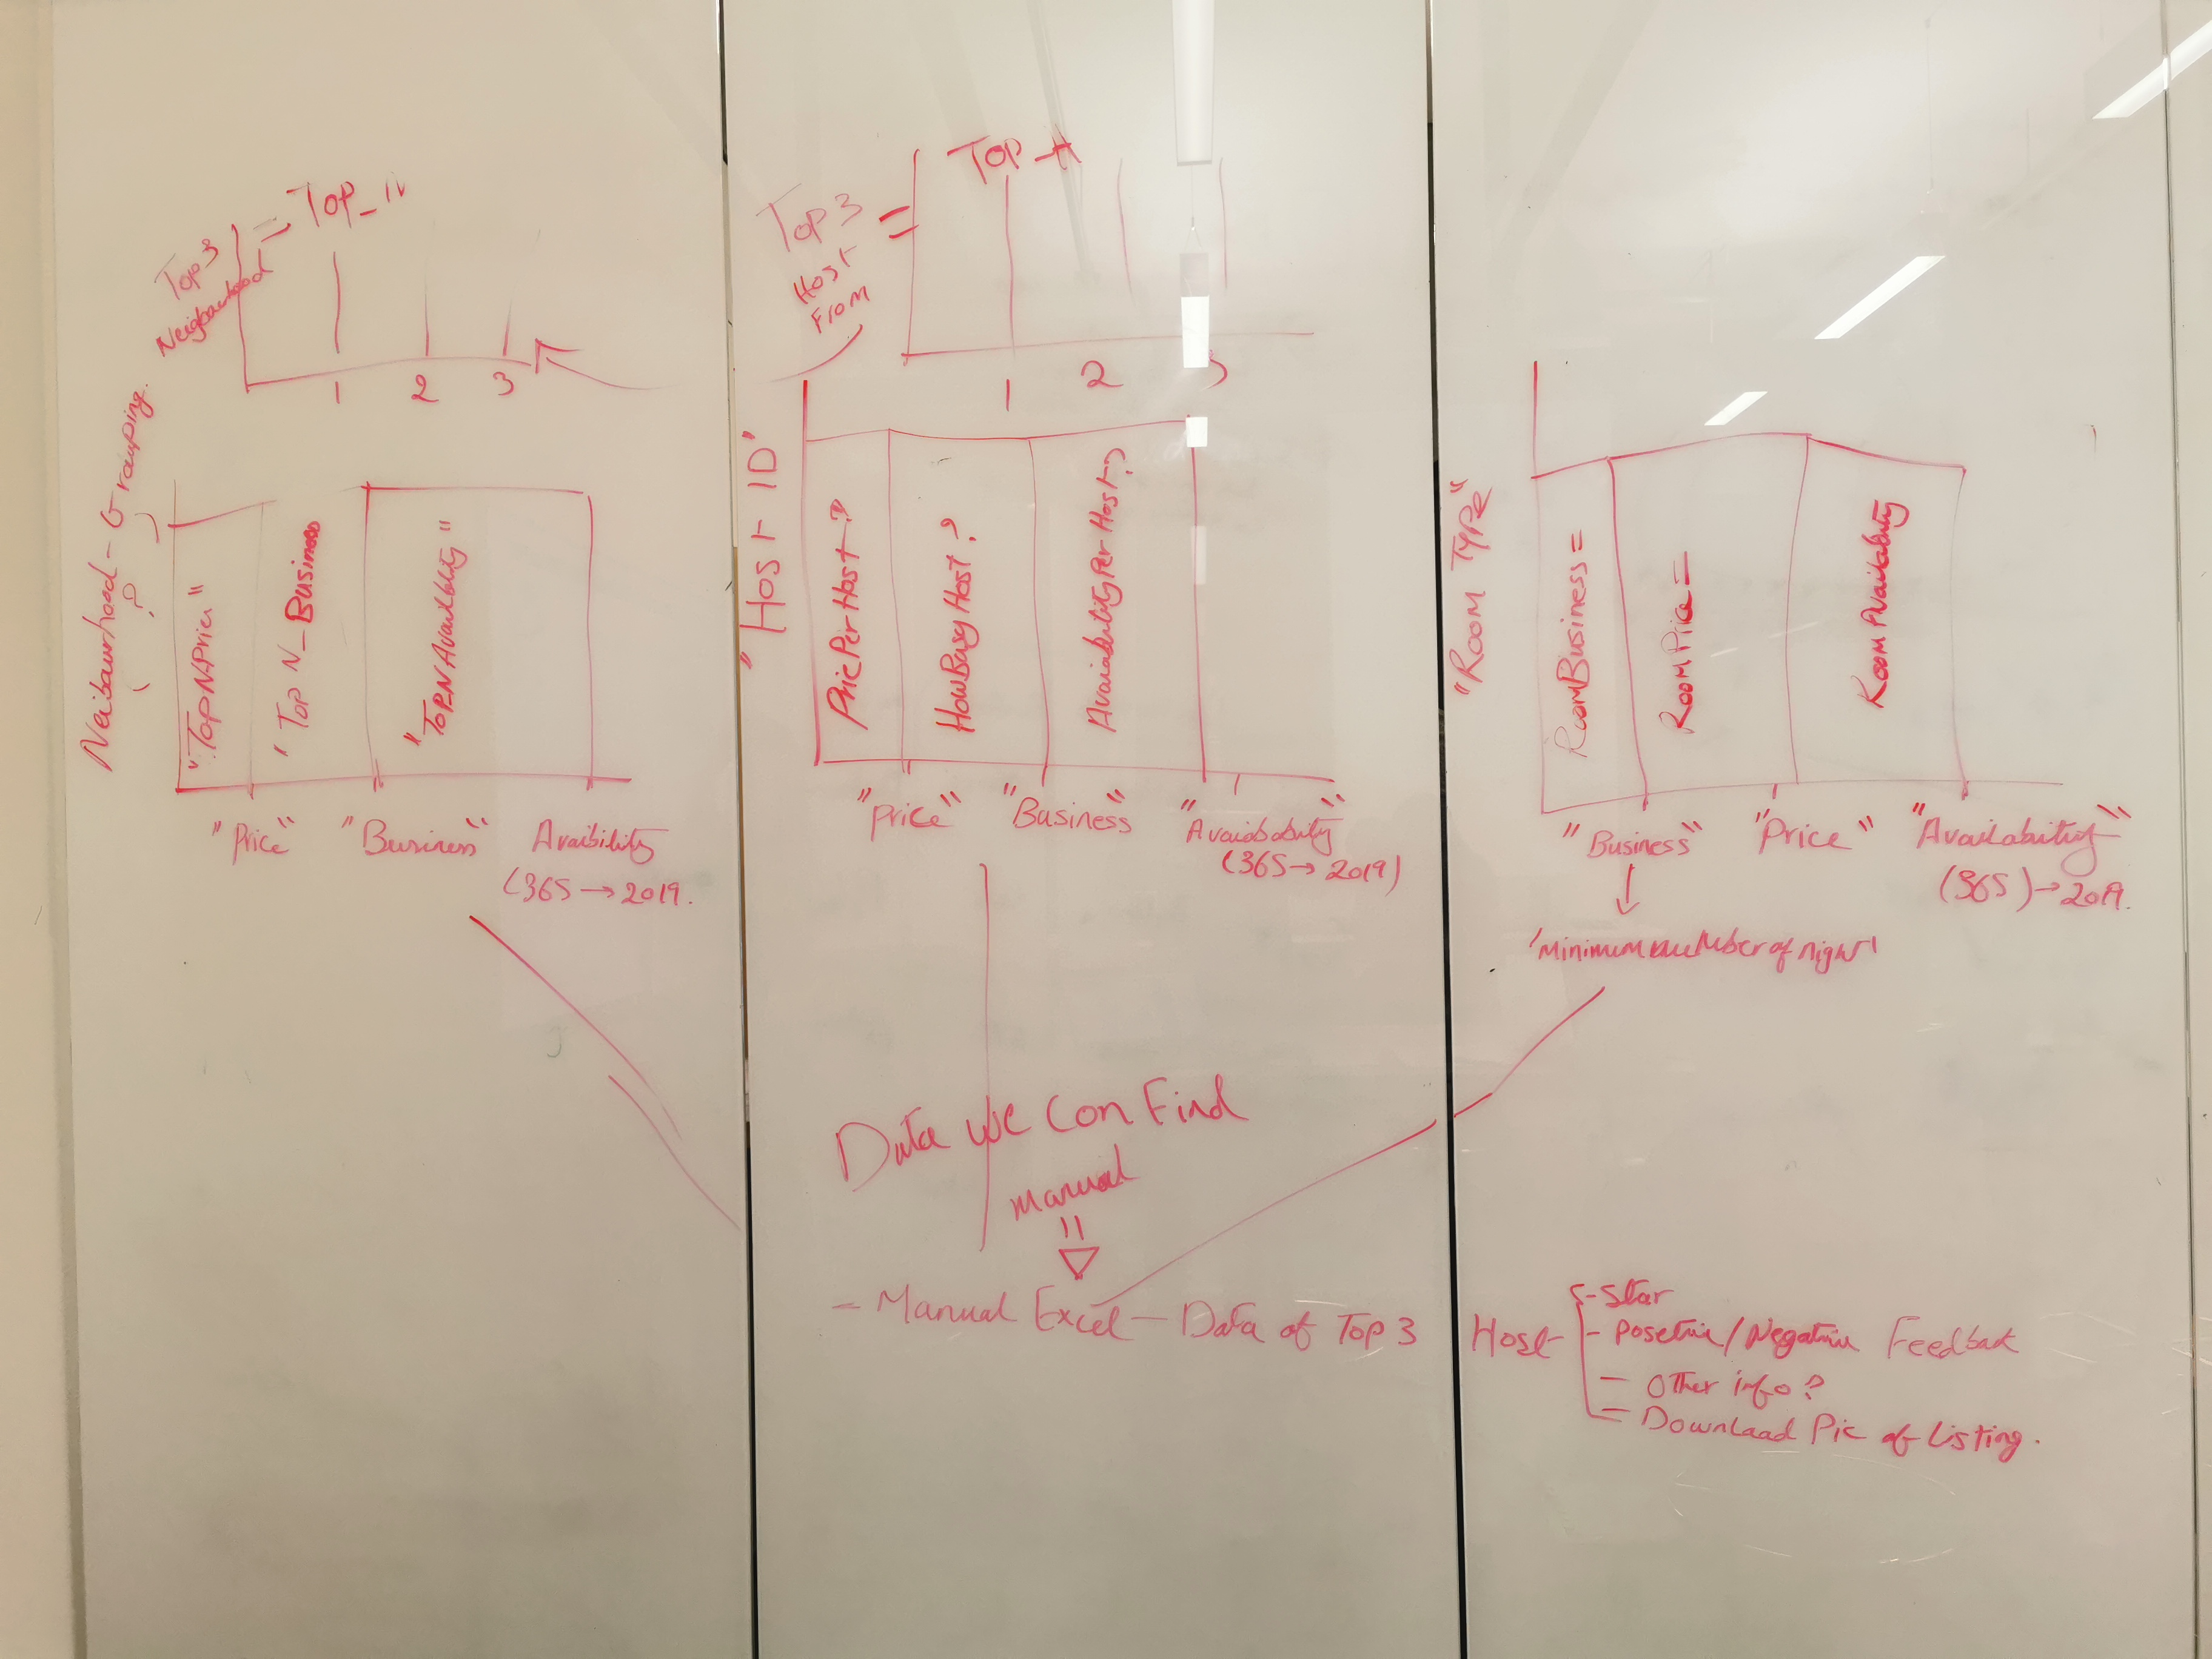 Top 3
Neigbourhood
= Top_N
1 2 3
Neibourhood - Grouping.
?
"TopNPrice"
'Top N_Business
"TopNAvailability"
"Price" "Business" Avaibility
(365 → 2019.
Top 3
Host
From
=
Top - H
1 2 3
"Host ID'
PricePerHost?
HowBusyHost?
AvaiabilityPerHost?
"Price" "Business" "Avaiabability"
(365 → 2019)
"Room Type"
RoomBusiness =
RoomPrice =
RoomAvailability
"Business" "Price" "Availabaitity"
(365) → 2019.
'minimum number of night'
Data we Can Find
manual
- Manual Excel - Data of Top 3 Host
- Star
- Posetive/Negative Feedback
- Other info?
- Download Pic of Listing.